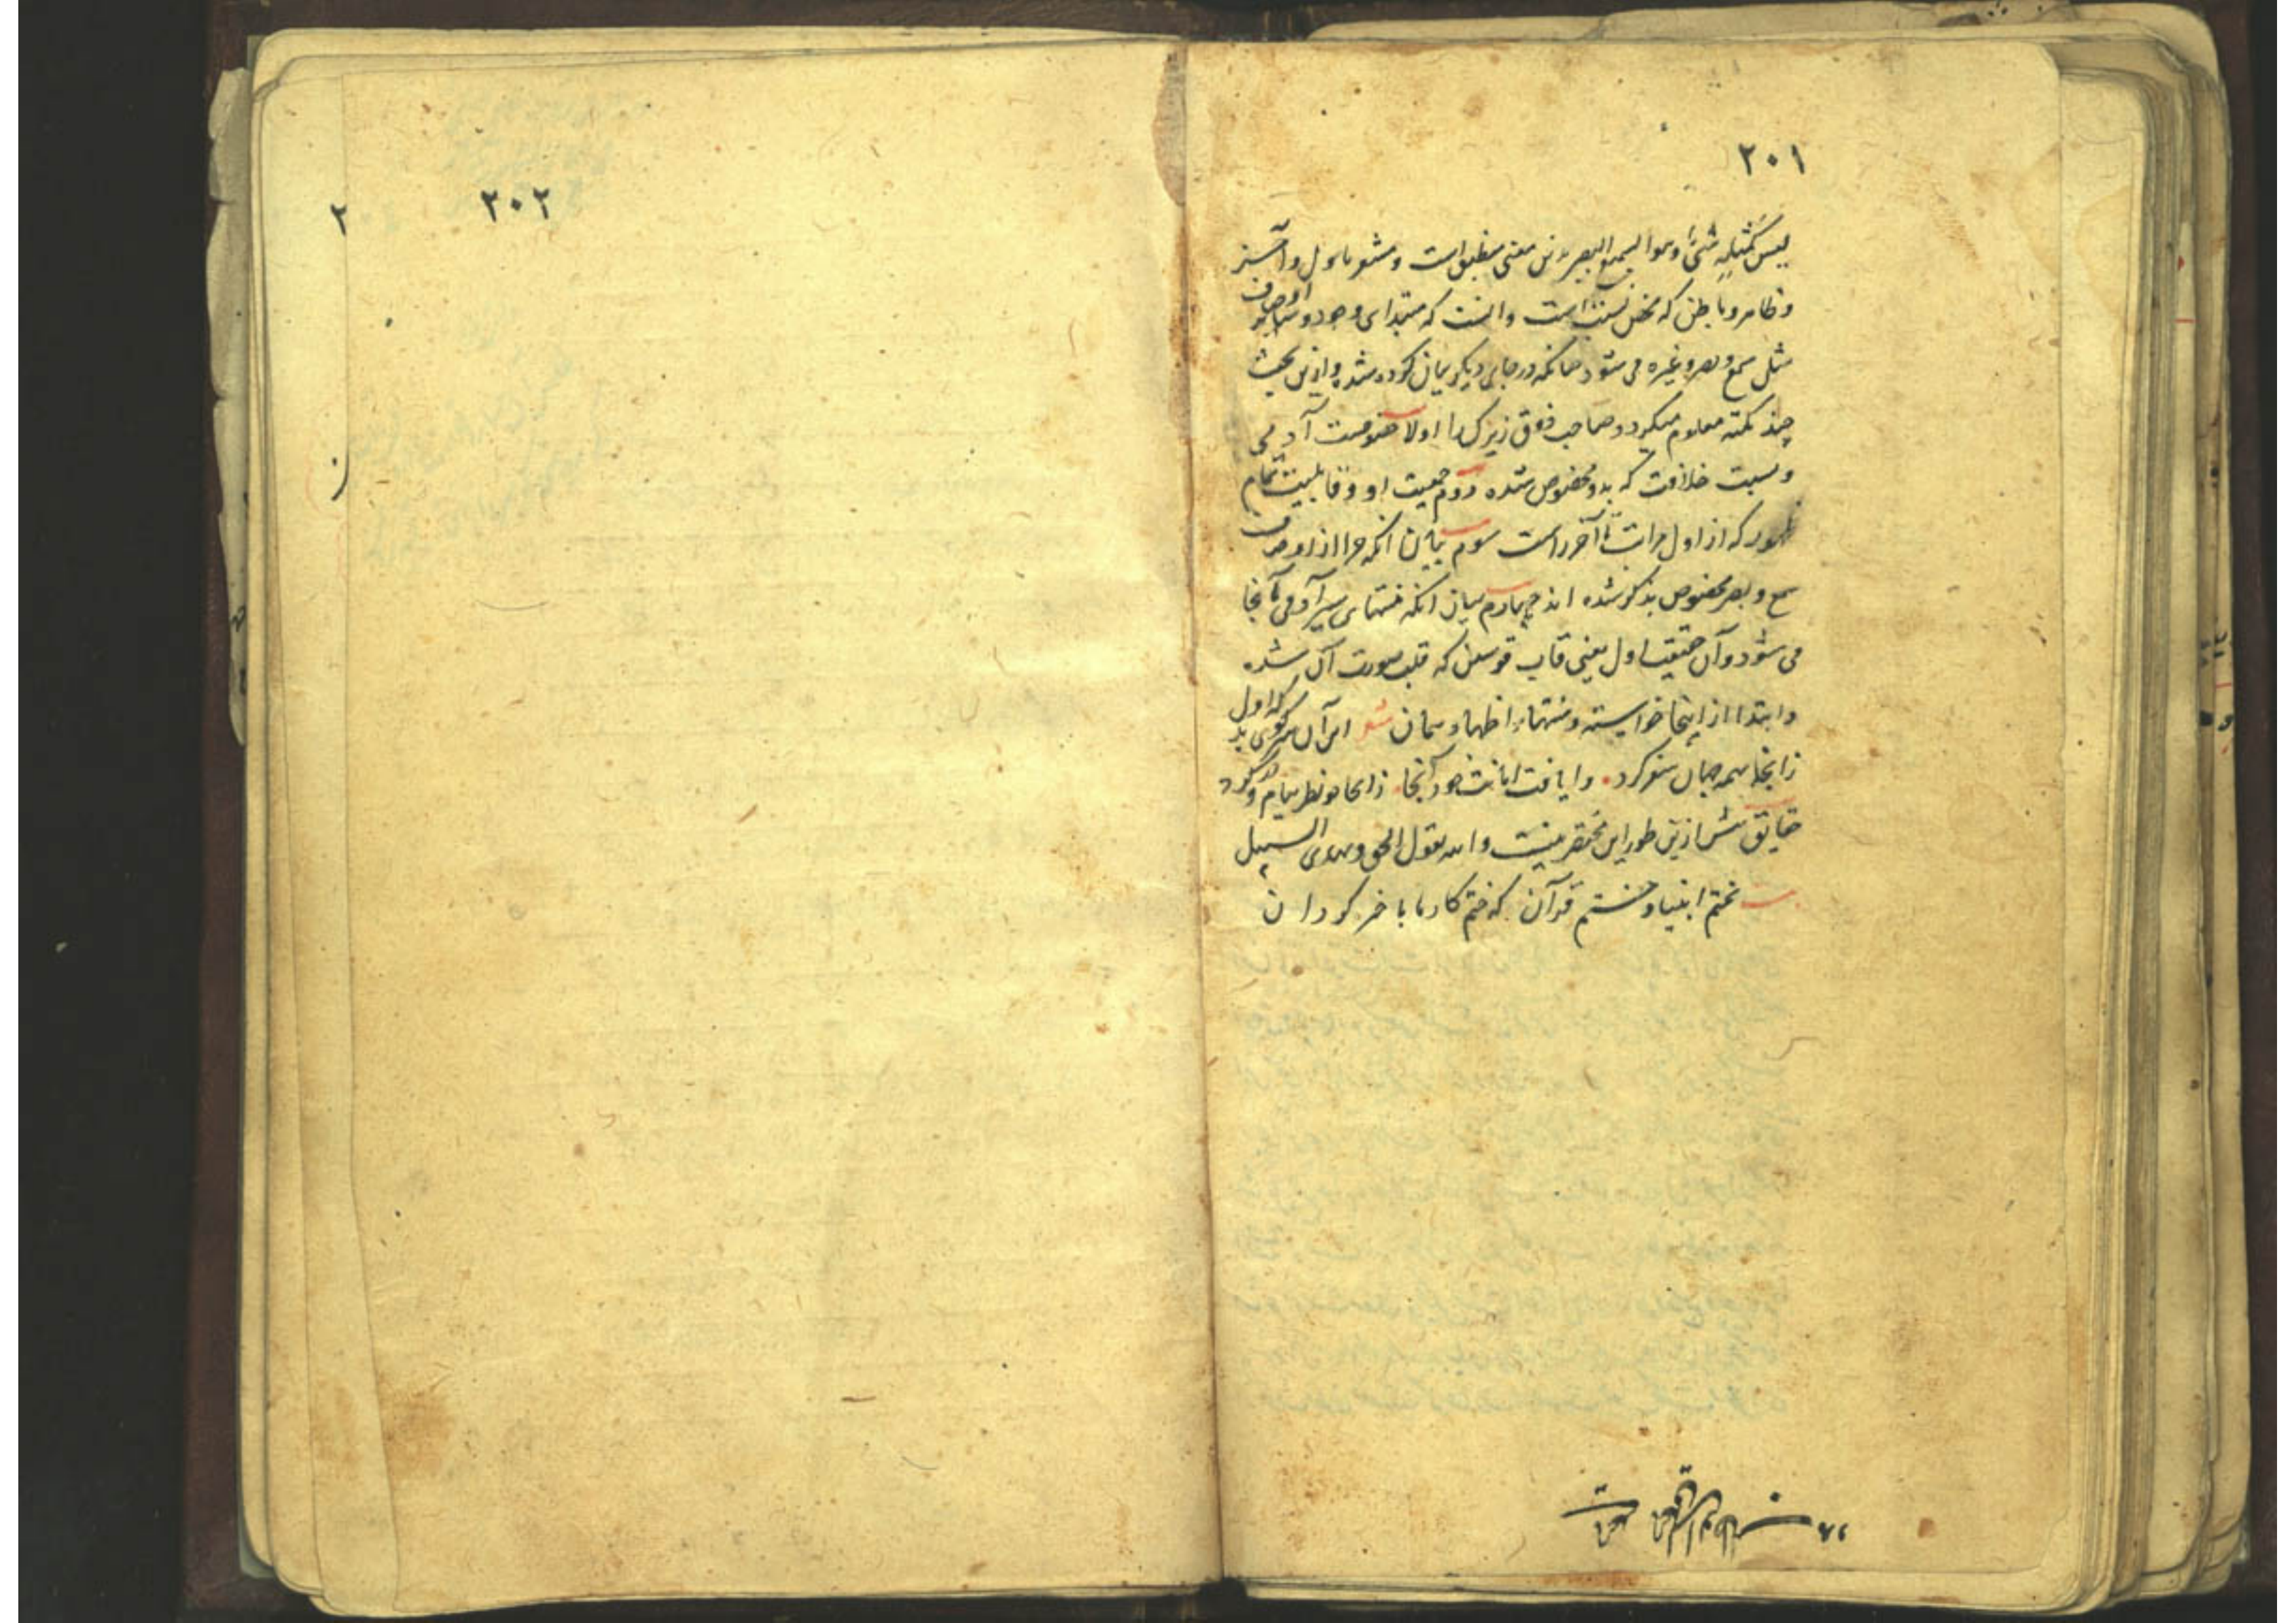 ۲۰۱
لیس کمثله شئ وهو السمیع البصیر برین معنی منطبق است و مشعر باول و آخر
و ظاهر و باطن که محض نسبت است و آنست که مبتدای وجود و سایر اوصاف
مثل سمع و بصر و غیره می شود چنانکه در جای دیگر بیان کرده شد و ازین بحث
چند نکته معلوم میگردد صاحب ذوق زیرک را اولا خصوصیت آدمی
و نسبت خلافت که بدو مخصوص شده دوم جمعیت او و قابلیت تمام
ظهور که از اول مراتب تا آخر راست سوم بیان آنکه چرا از اوصاف
سمع و بصر مخصوص بذکر شده اند چهارم بیان آنکه منتهای سیر آدمی تا کجا
می شود و آن حقیقت اول یعنی قاب قوسین که قلب صورت آن شده
و ابتدا از اینجا خواسته و منتهاء اظهار همان شعر این آن سر کوی بد که اول
زانجا بهمه جهان سفر کرد وا یافت امانت خود آنجا زانجا چو نظر بیام و در کرد
حقایق بیش ازین طور این مختصر نیست والله یقول الحق و یهدی السبیل
بختم انبیا و ختم قرآن که ختم کار ما با خیر گردان
۲۰۲
۲